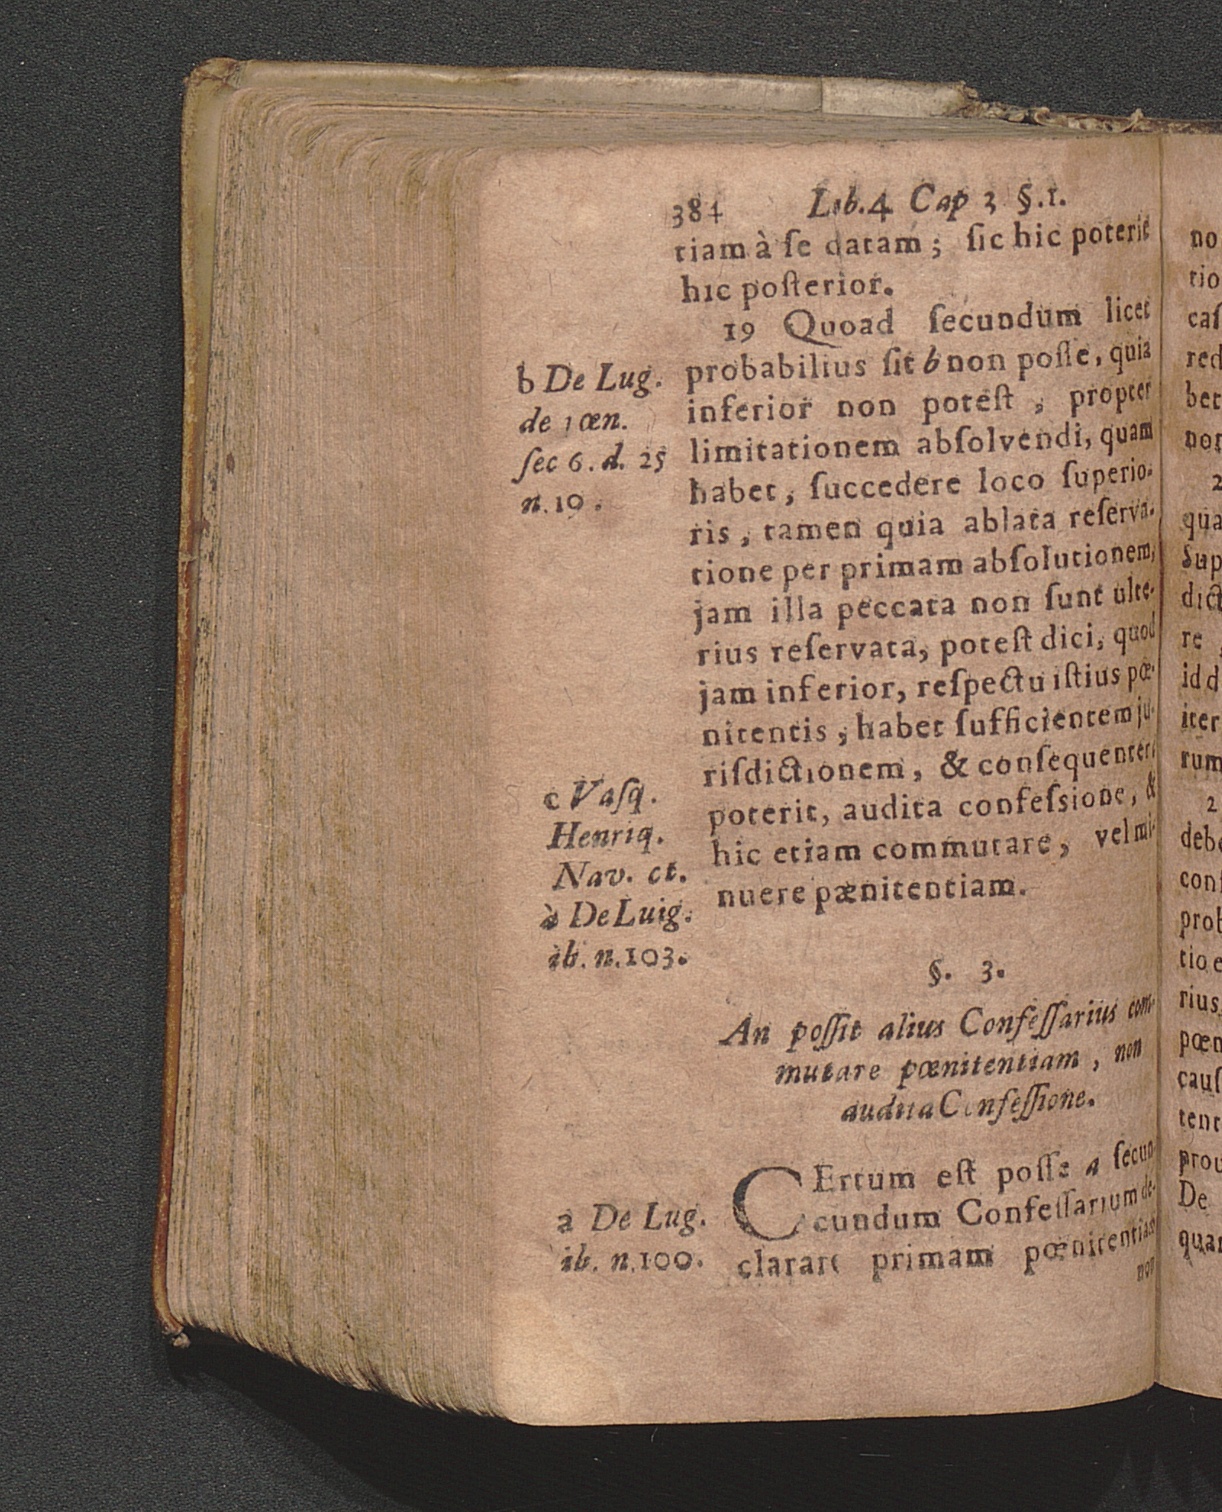 384 Lib.4 Cap 3 §.1.
tiam à ſe datam; ſic hic poterit
hic poſterior.
19 Quoad ſecundum licet
probabilius ſit b non poſſe, quia
inferior non poteſt, propter
limitationem abſolvendi, quam
habet, ſuccedere loco ſuperio-
ris, tamen quia ablata reſerva-
tione per primam abſolutionem,
jam illa peccata non ſunt ulte-
rius reſervata, poteſt dici, quod
jam inferior, reſpectu iſtius pœ-
nitentis, habet ſufficientem ju-
riſdictionem, & conſequenter
poterit, audita confeſsione, &
hic etiam commutare, vel mi-
nuere pænitentiam.
b De Lug.
de pœn.
ſec 6. d. 25
n. 19.
c Vaſq.
Henriq.
Nav. ct.
à De Luig.
ib. n. 103.
§. 3.
An poſſit alius Confeſſarius com-
mutare pœnitentiam, non
audita Confeſſione.
CErtum eſt poſſe a ſecun-
cundum Confeſſarium de-
clarare primam pœnitentiam
non
a De Lug.
ib. n. 100.
no
tio
caſ
red
bet
non
2
qua
Sup
dict
re
id d
iter
rum
2
debe
conſ
prob
tio e
rius,
pœn
cauſ
tent
prou
De
quan